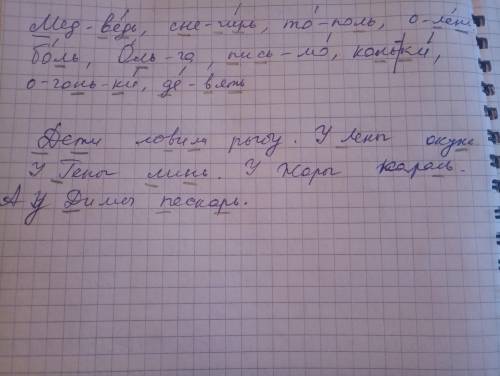 Мед-ве́дь, сне-ги́рь, то́-поль, о-ле́нь
бо́ль, О́ль-га, пись-мо́, коньки́,
о-гонь-ки́, де́-вять
Дети ловили рыбу. У Лены окунь
У Гены линь. У Жоры карась.
А У Димы пескарь.